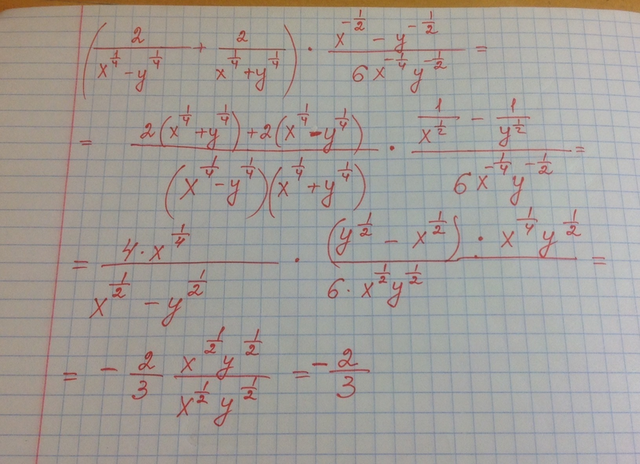 (2/(x^(1/4) - y^(1/4)) + 2/(x^(1/4) + y^(1/4))) · (x^(-1/2) - y^(-1/2))/(6x^(-1/4)y^(-1/2)) =
= (2(x^(1/4) + y^(1/4)) + 2(x^(1/4) - y^(1/4)))/((x^(1/4) - y^(1/4))(x^(1/4) + y^(1/4))) · (1/x^(1/2) - 1/y^(1/2))/(6x^(-1/4)y^(-1/2)) =
= (4·x^(1/4))/(x^(1/2) - y^(1/2)) · ((y^(1/2) - x^(1/2)) · x^(1/4)y^(1/2))/(6·x^(1/2)y^(1/2)) =
= - 2/3 (x^(1/2)y^(1/2))/(x^(1/2)y^(1/2)) = - 2/3